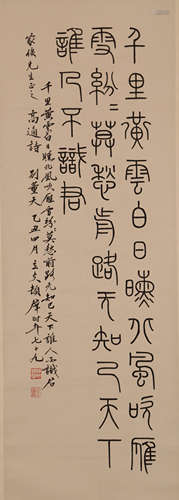 千里黃雲白日曛北風吹雁
雪紛〻莫愁前路无知己天下
誰人不識君
千里黃雲白日曛北風吹雁雪紛〻莫愁前路无知己天下誰人不識君
高適詩 別董大 乙丑四月 時年七十九
先生正之